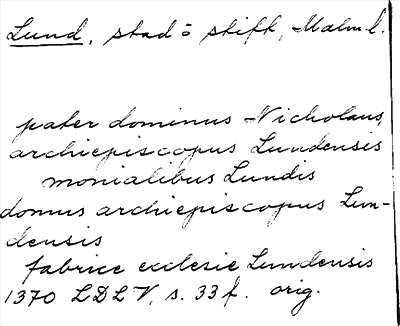 Lund, stad o stift, Malm.l.
pater dominus Nicholaus,
archiepiscopus Lundensis
monialibus Lundis
domus archiepiscopus Lun-
densis
fabrice ecclesie Lundensis
1370 LDLV, s. 33f. orig.